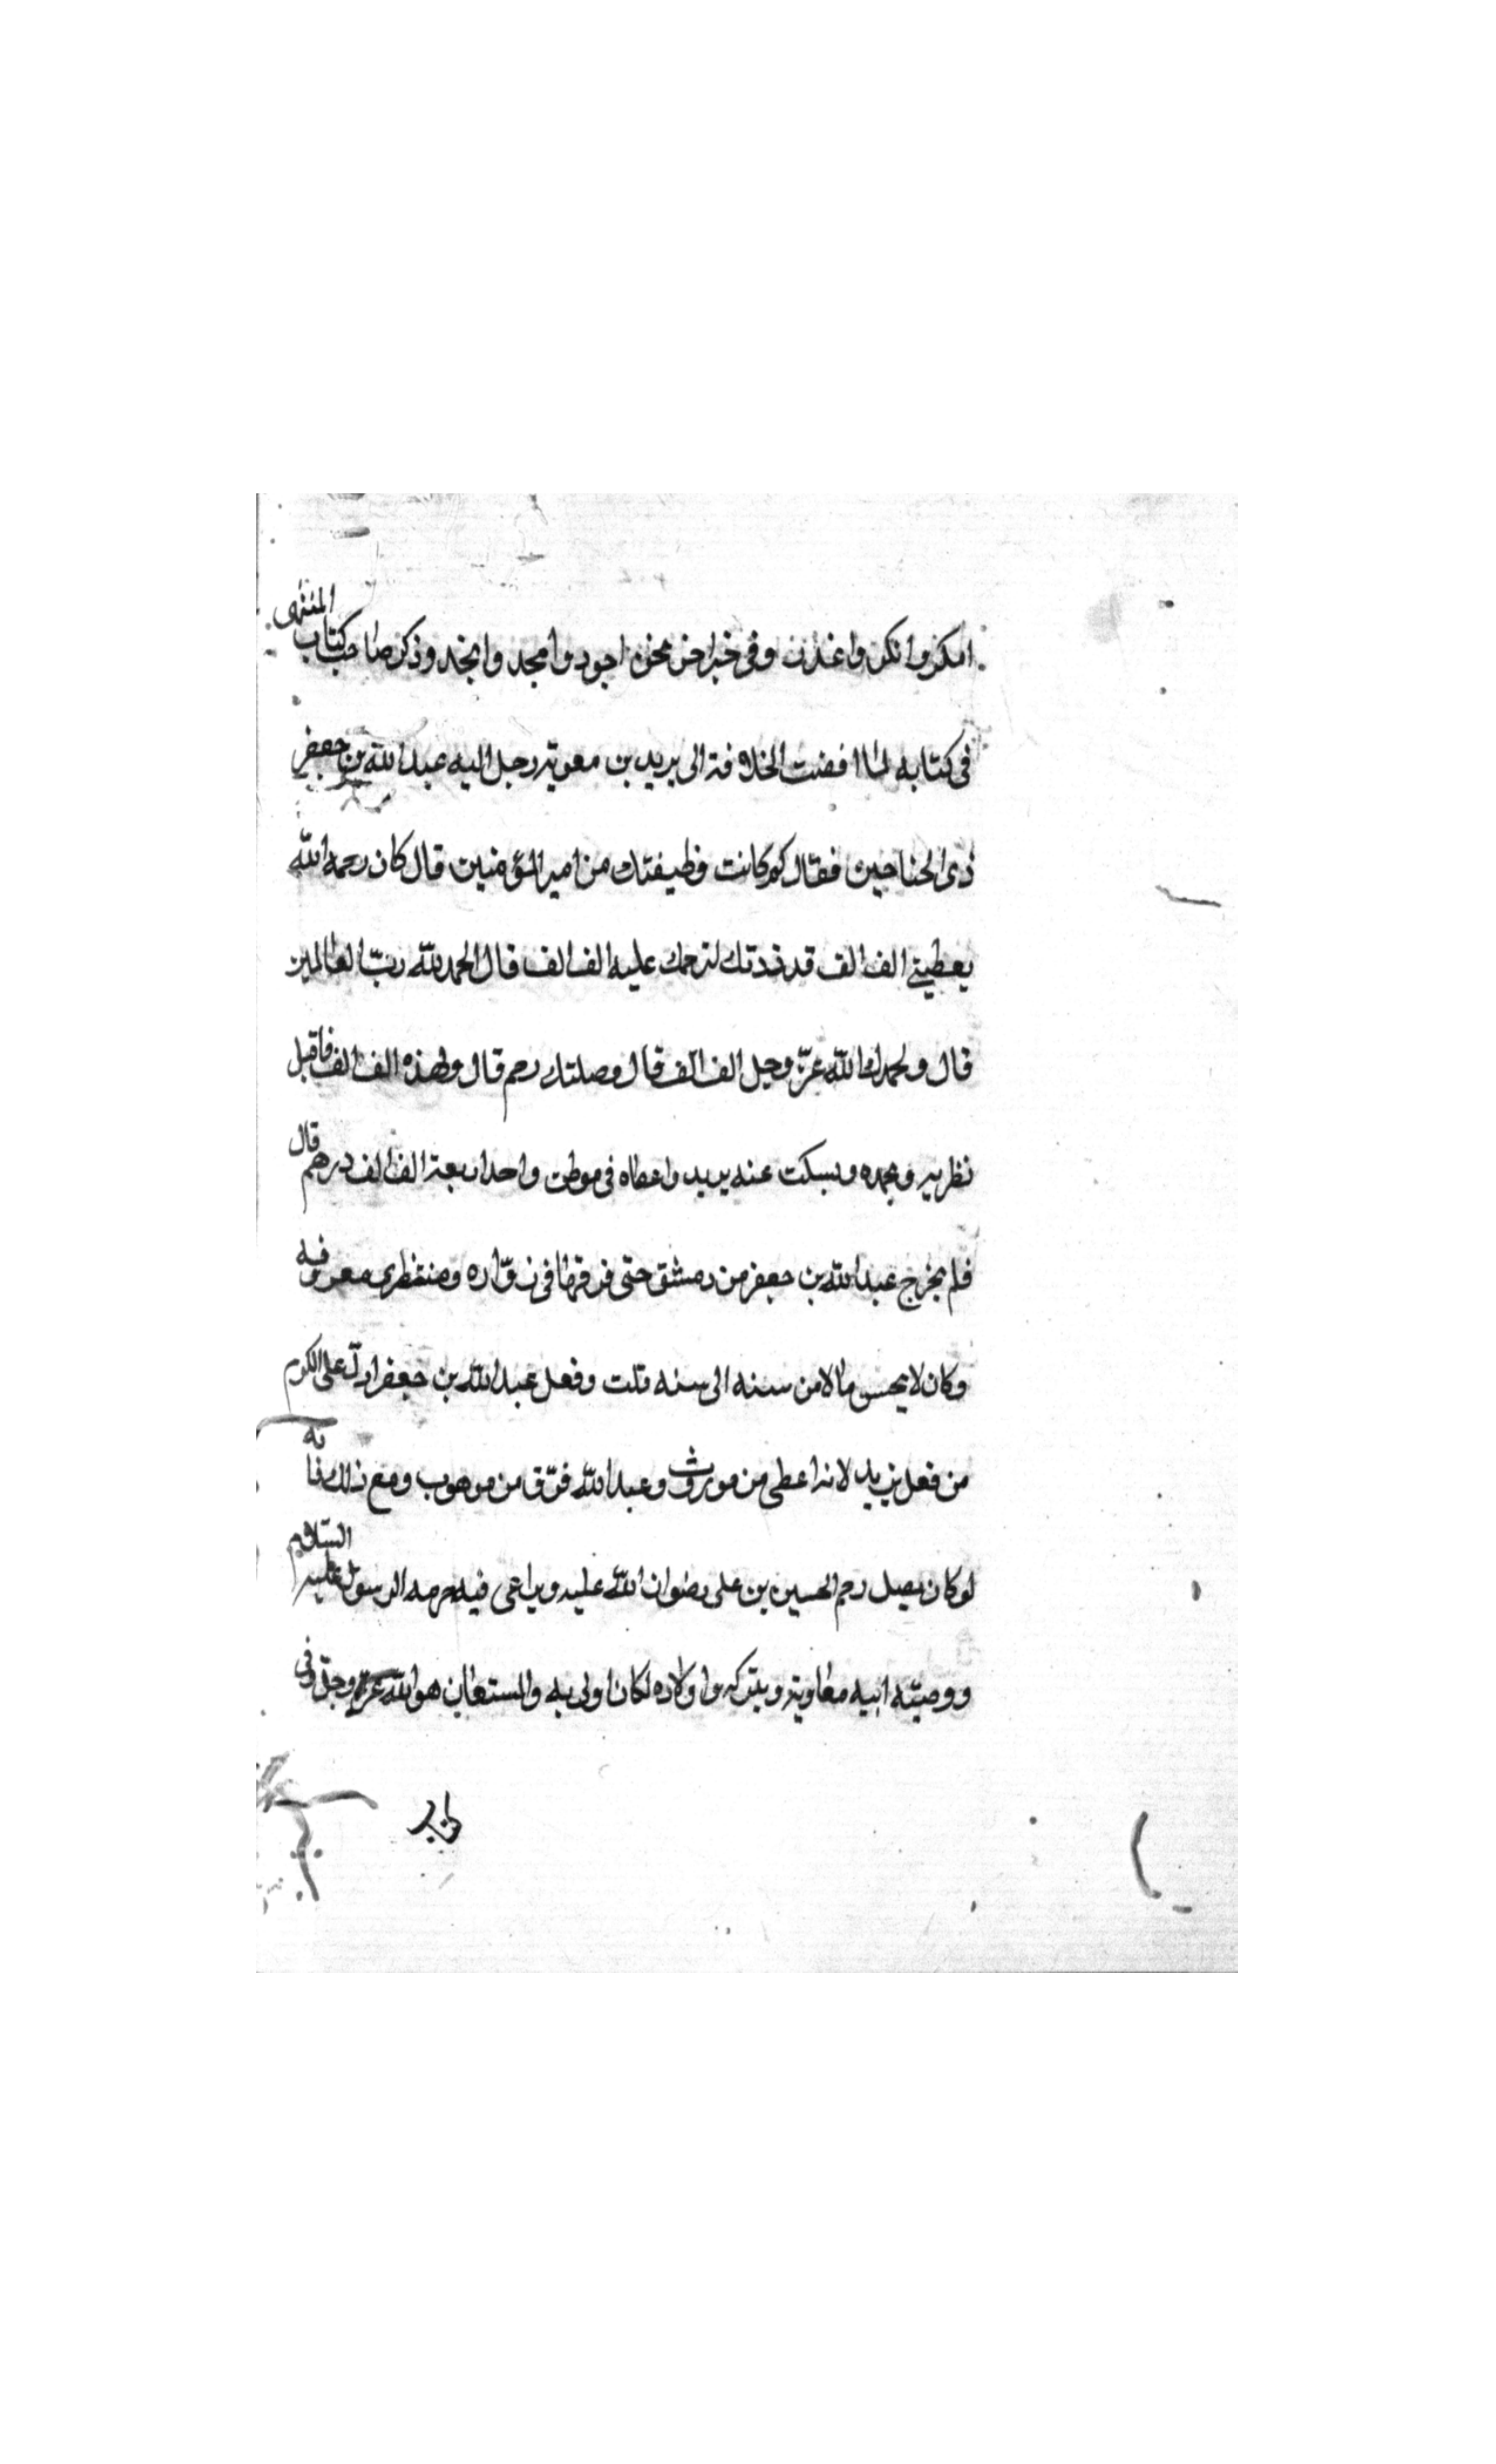 امكر وانكر واغدر وفى خبر اخر نحن اجود وامجد وانجد وذكر صاحب كتاب المنتهى
فى كتابه لما افضت الخلافة الى يزيد بن معوية رحل اليه عبد الله بن جعفر
ذى الجناحين فقال كم كانت وظيفتك من امير المؤمنين قال كان رحمه الله
يعطينى الف الف قد زدتك لترحمك عليه الف الف قال الحمد لله رب العالمين
قال ولحمدك الله عز وجل الف الف قال وصلتك رحم قال ولهذه الف الف فاقبل
نظريه وبحمده ويسكت عنه يزيد واعطاه فى موطن واحد اربعة الف الف درهم قال
فلم يخرج عبد الله بن جعفر من دمشق حتى فرقها فى زواره ومنتظرى معروفه
وكان لا يحبس مالا من سنه الى سنه قلت وفعل عبد الله بن جعفر ادل على الكرم
من فعل يزيد لانه اعطى من موروث وعبد الله فرق من موهوب ومع ذلك فانه
لو كان يصل رحم الحسين بن على رضوان الله عليه ويراعى فيه حرمه الرسول عليه السلام
ووصيته ابيه معاوية ويتركه واولاده لكان اولى به والمستعان هو الله عز وجل وفى